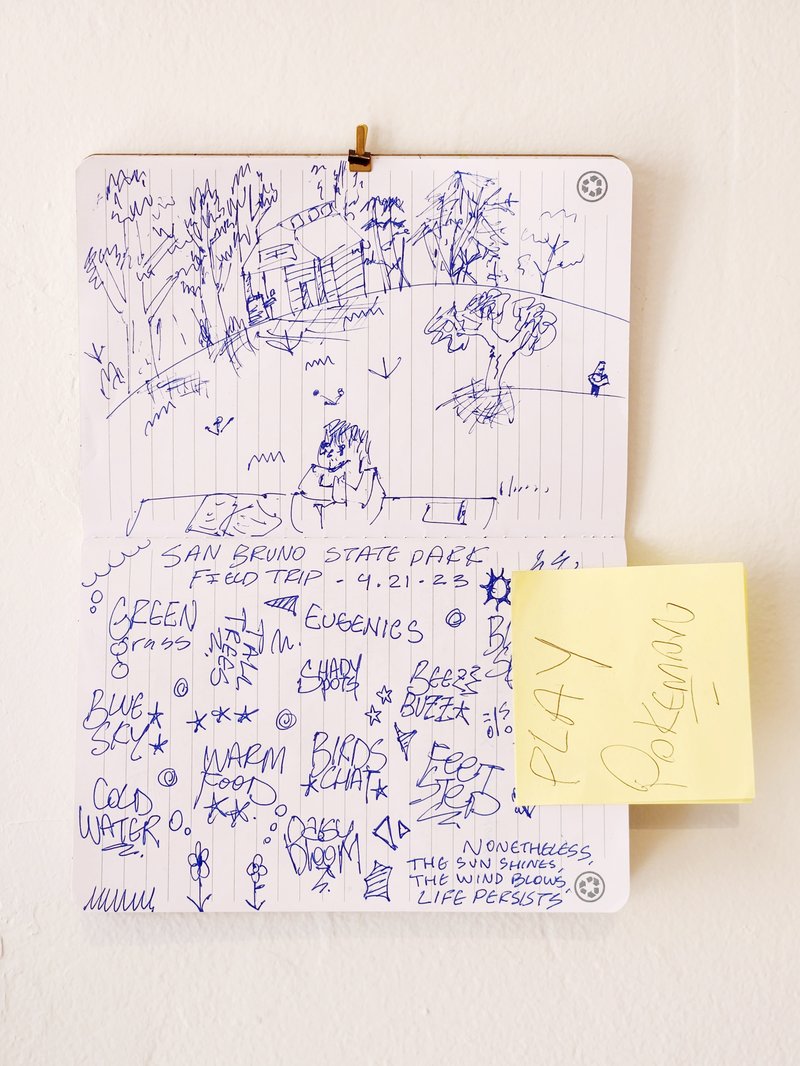 SAN BRUNO STATE PARK
FIELD TRIP - 4.21.23
GREEN
grass
TALL
TREES
EUGENICS
SHADY
SPOTS
BEEZZ
BUZZ
BLUE
SKY
WARM
FOOD
BIRDS
CHAT
FEET
STEP
COLD
WATER
DAISY
BLOOM
NONETHELESS,
THE SUN SHINES,
THE WIND BLOWS,
LIFE PERSISTS
PLAY
POKEMAN